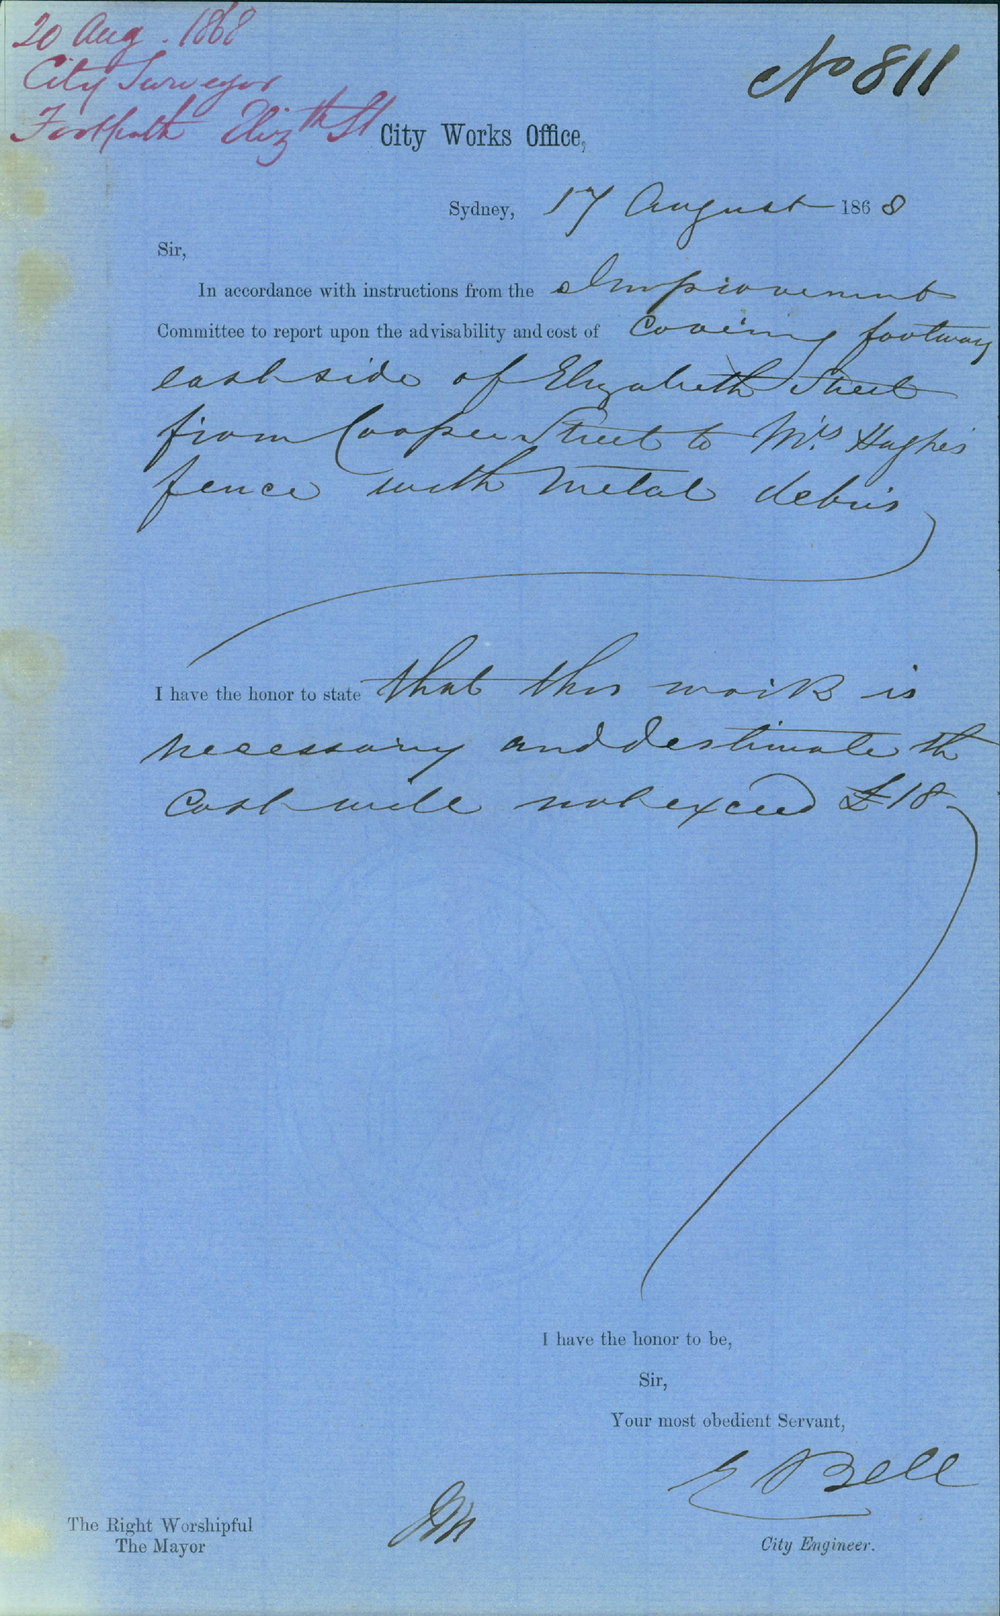 20 Aug. 1868
City Surveyor
Footpath Elizth St
No 811
City Works Office,
Sydney, 17 August 1868
Sir,
In accordance with instructions from the Improvement
Committee to report upon the advisability and cost of Covering footway
east side of Elizabeth Street
from Cooper Street to Mrs Hughes
fence with metal debris
I have the honor to state that this work is
necessary and I estimate the
Cost will not exceed £18
I have the honor to be,
Sir,
Your most obedient Servant,
E Bell
The Right Worshipful
The Mayor
City Engineer.